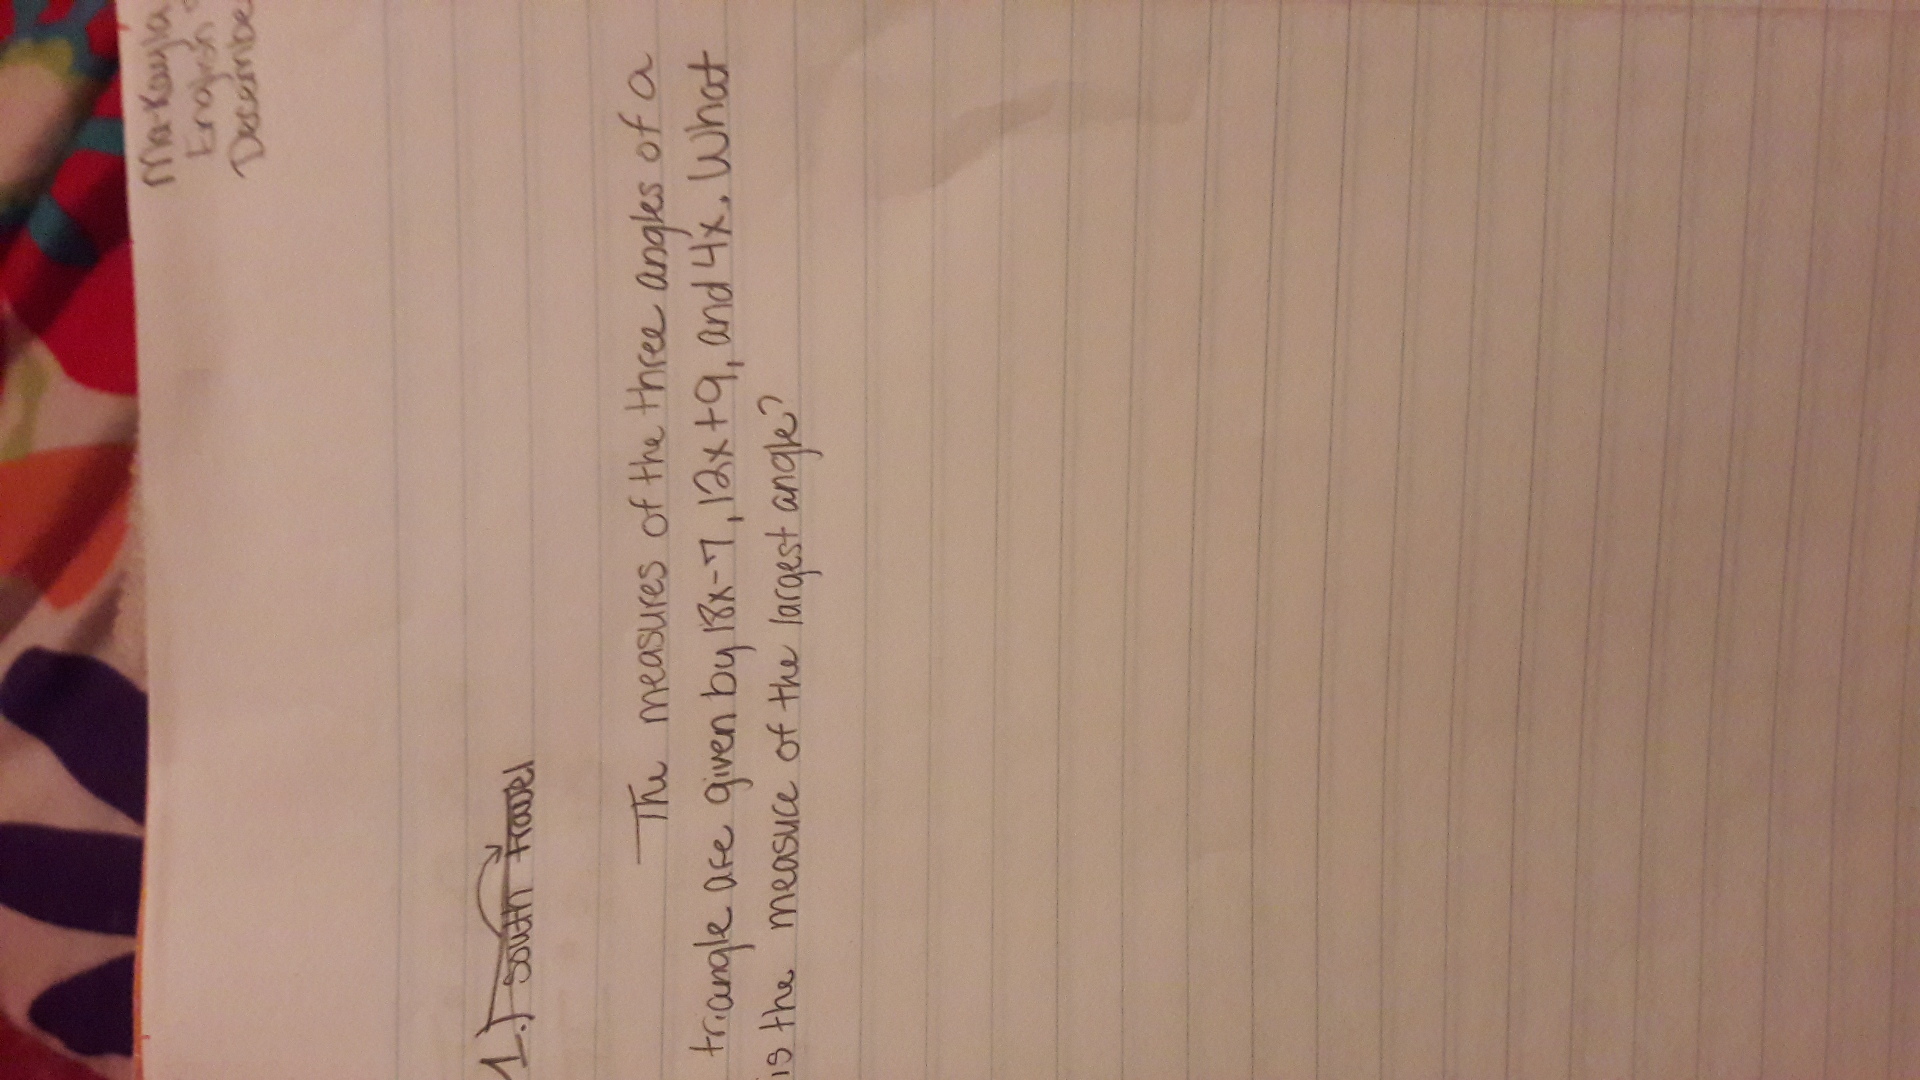 Ma-Kayla
English
Decembe
1.) south travel
The measures of the three angles of a
triangle are given by 18x-7, 12x+9, and 4x. What
is the measure of the largest angle?